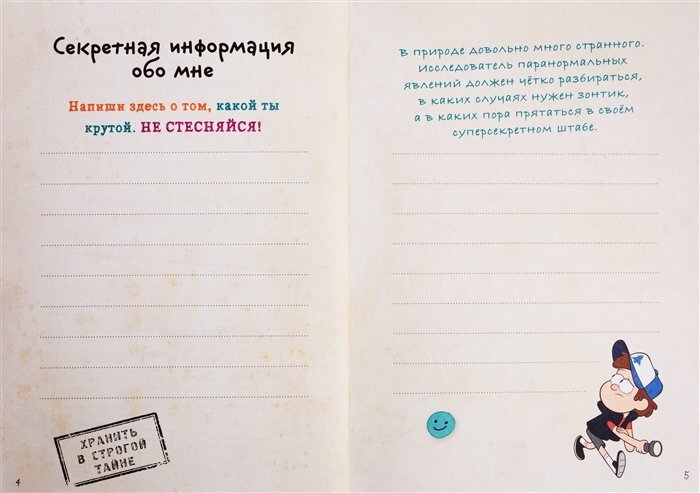 Секретная информация
обо мне
Напиши здесь о том, какой ты
крутой. НЕ СТЕСНЯЙСЯ!
ХРАНИТЬ
В СТРОГОЙ
ТАЙНЕ
4
В природе довольно много странного.
Исследователь паранормальных
явлений должен чётко разбираться,
в каких случаях нужен зонтик,
а в каких пора прятаться в своём
суперсекретном штабе.
5